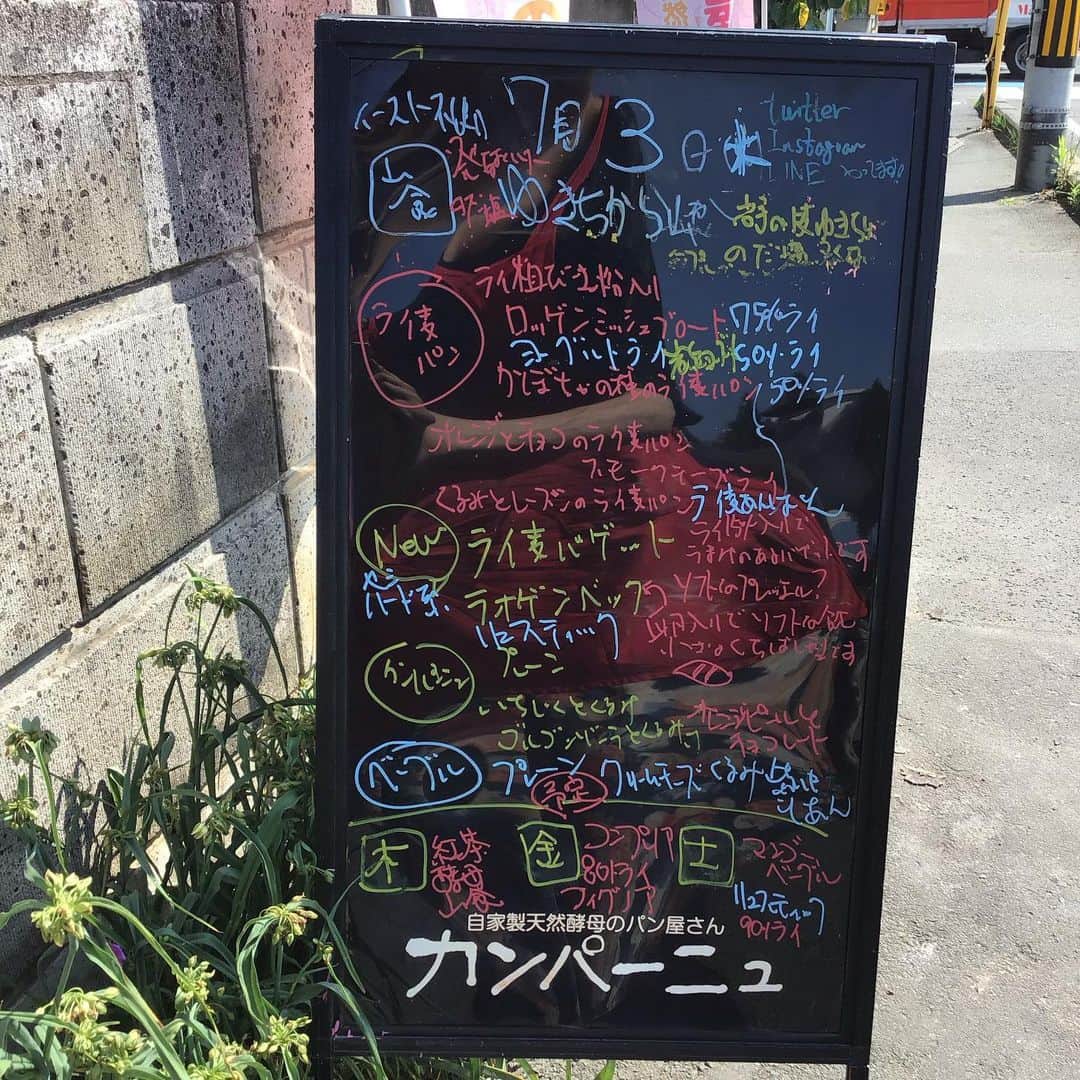 7月3日 水
twitter
Instagram
LINE やってます。
山食
ゆきちから
ライ麦パン
ライ粗びき粉入り
ロッゲンミッシュブロート 75%ライ
ヨーグルトライ 50%ライ
かぼちゃの種のライ麦パン 50%ライ
オレンジとチョコのライ麦パン
スモークチーズライ
くるみとレーズンのライ麦パン ライ麦あんぱん
New ライ麦バゲット
ライ15%入りで
うまみのあるバゲットです
ハード系
ソフトなプレッツェル?
リュスティック
カンパーニュ
プレーン
いちじくとくるみ
オレンジピールと
チョコレート
ゴルゴンゾーラとくるみ
ベーグル プレーン クリームチーズ くるみ
こしあん
予定
木 紅茶
酵母
山食
金 コンプレ
80%ライ
フィグ
土 マンゴー
ベーグル
リュスティック
90%ライ
自家製天然酵母のパン屋さん
カンパーニュ